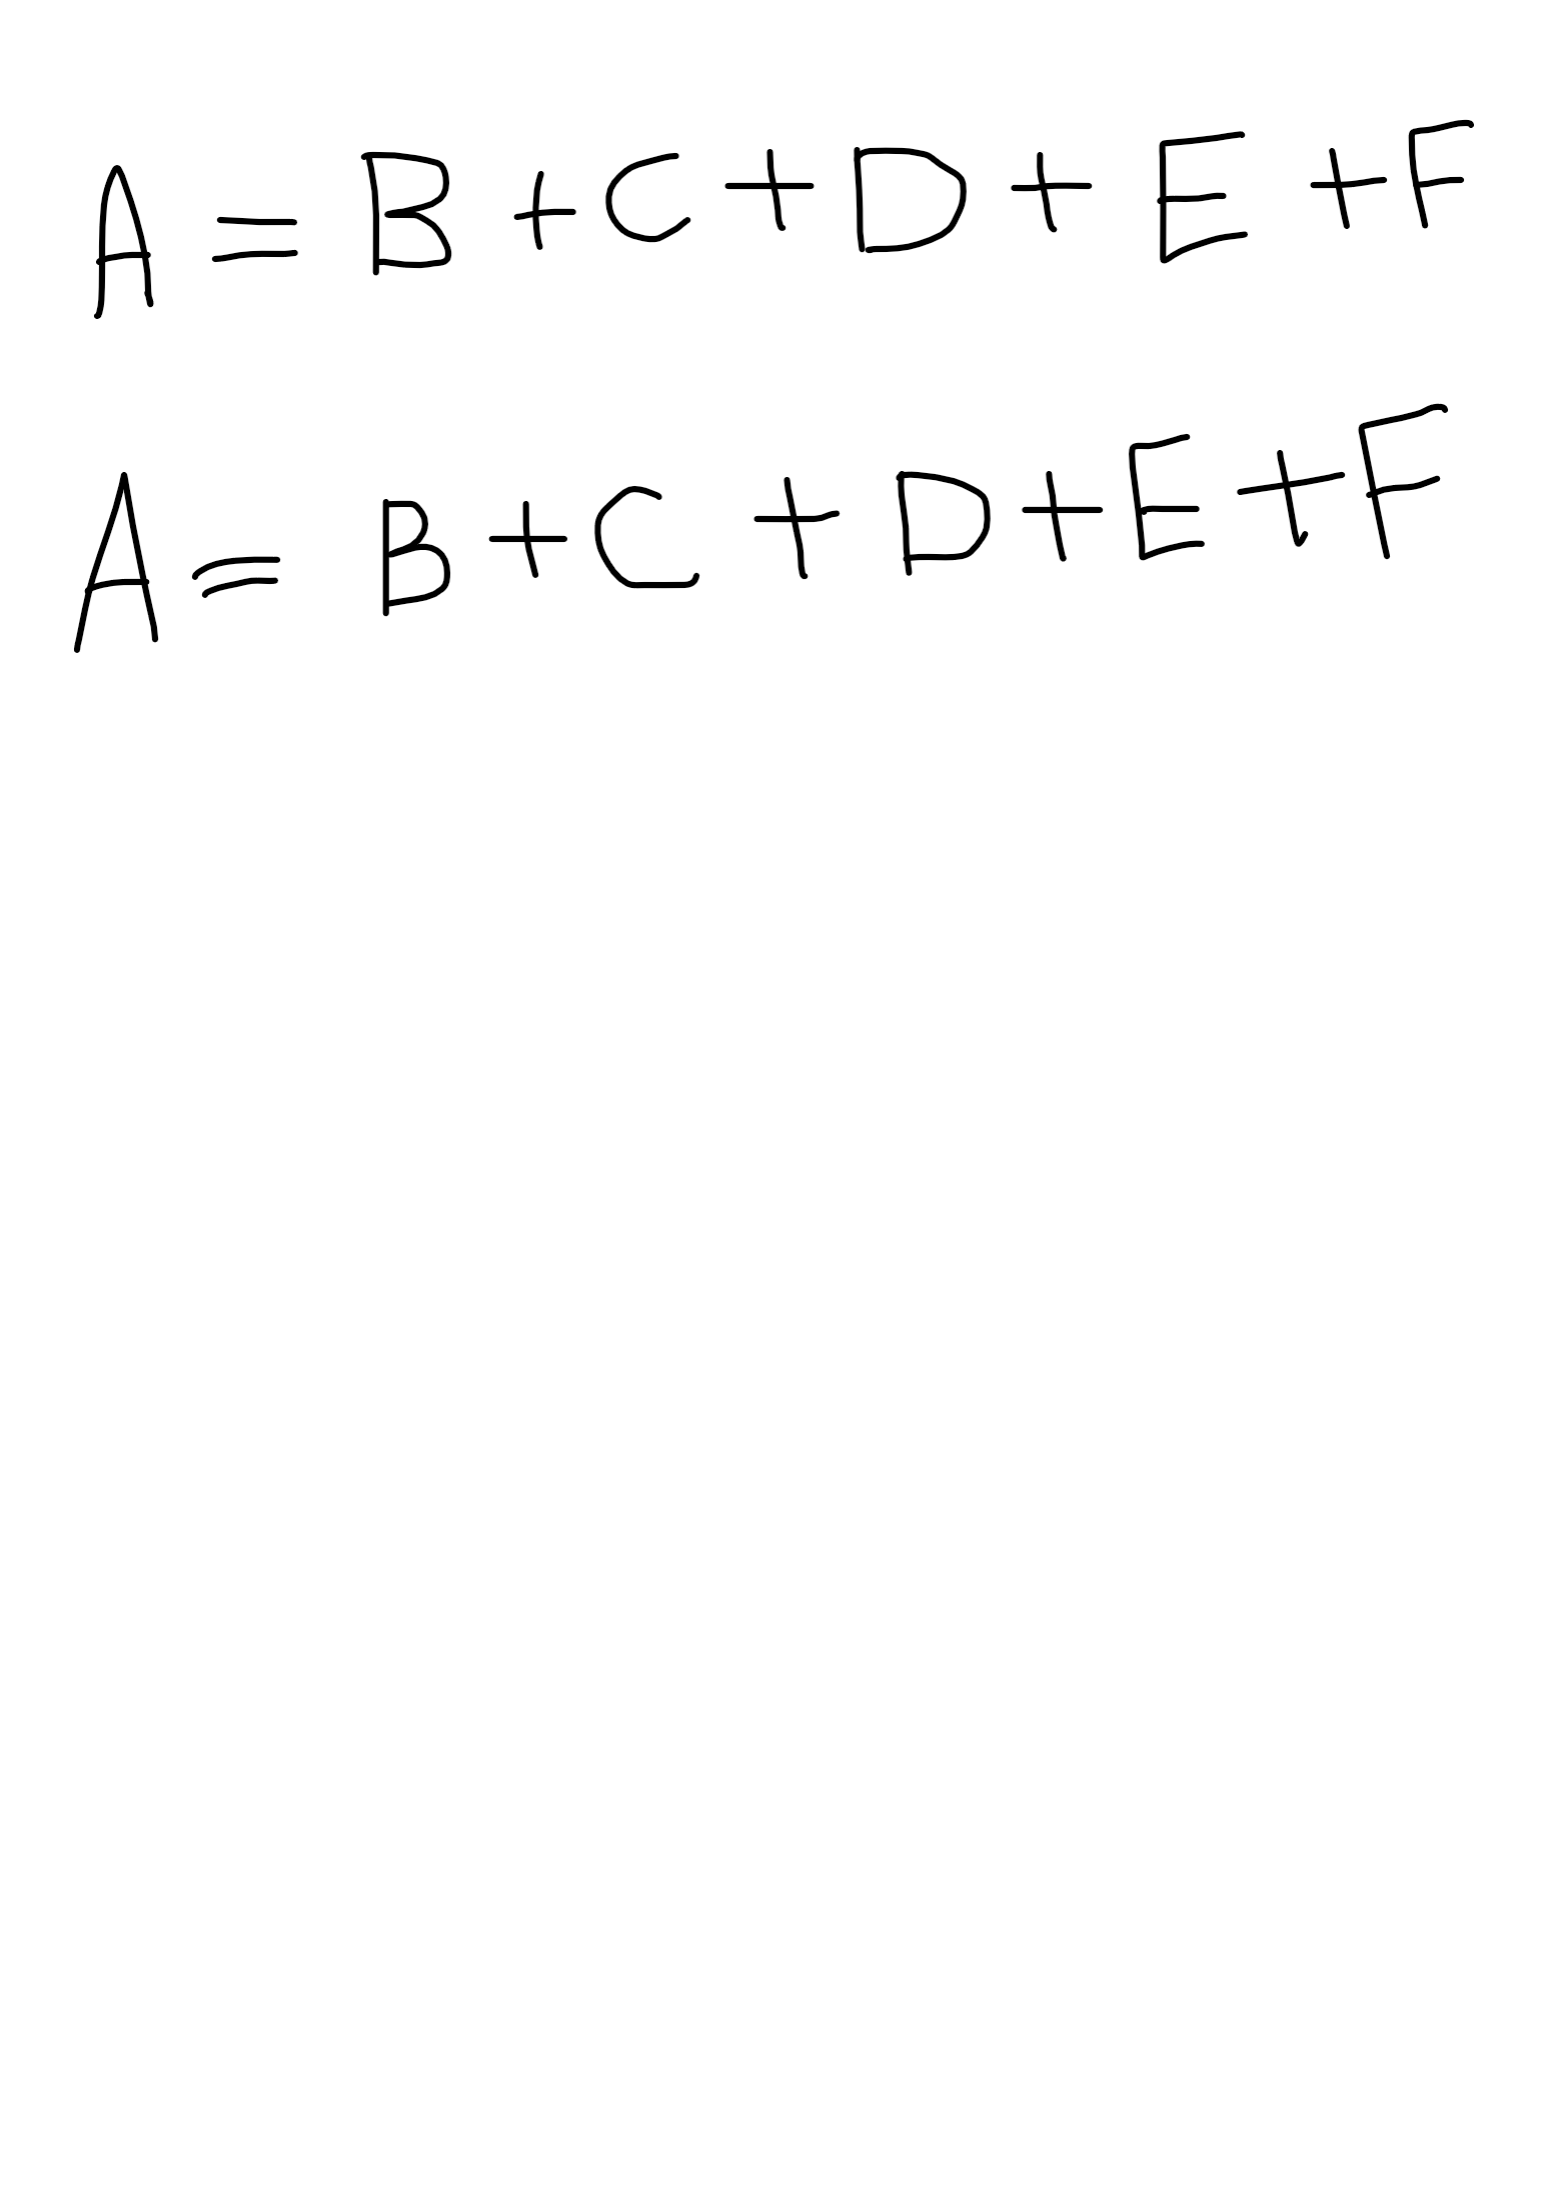 A = B + C + D + E + F
A = B + C + D + E + F